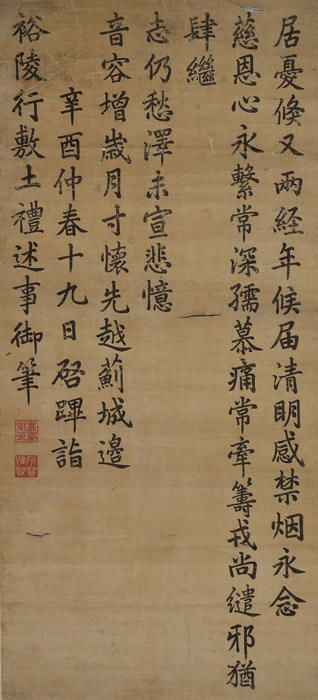 居憂倏又兩経年候届清明感禁烟永念
慈恩心永繫常深孺慕痛常牽籌戎尚缱邪猶
肆繼
志仍愁澤未宣悲憶
音容增嵗月寸懷先越薊城邉
辛酉仲春十九日啓蹕詣
裕陵行敷土禮述事御筆